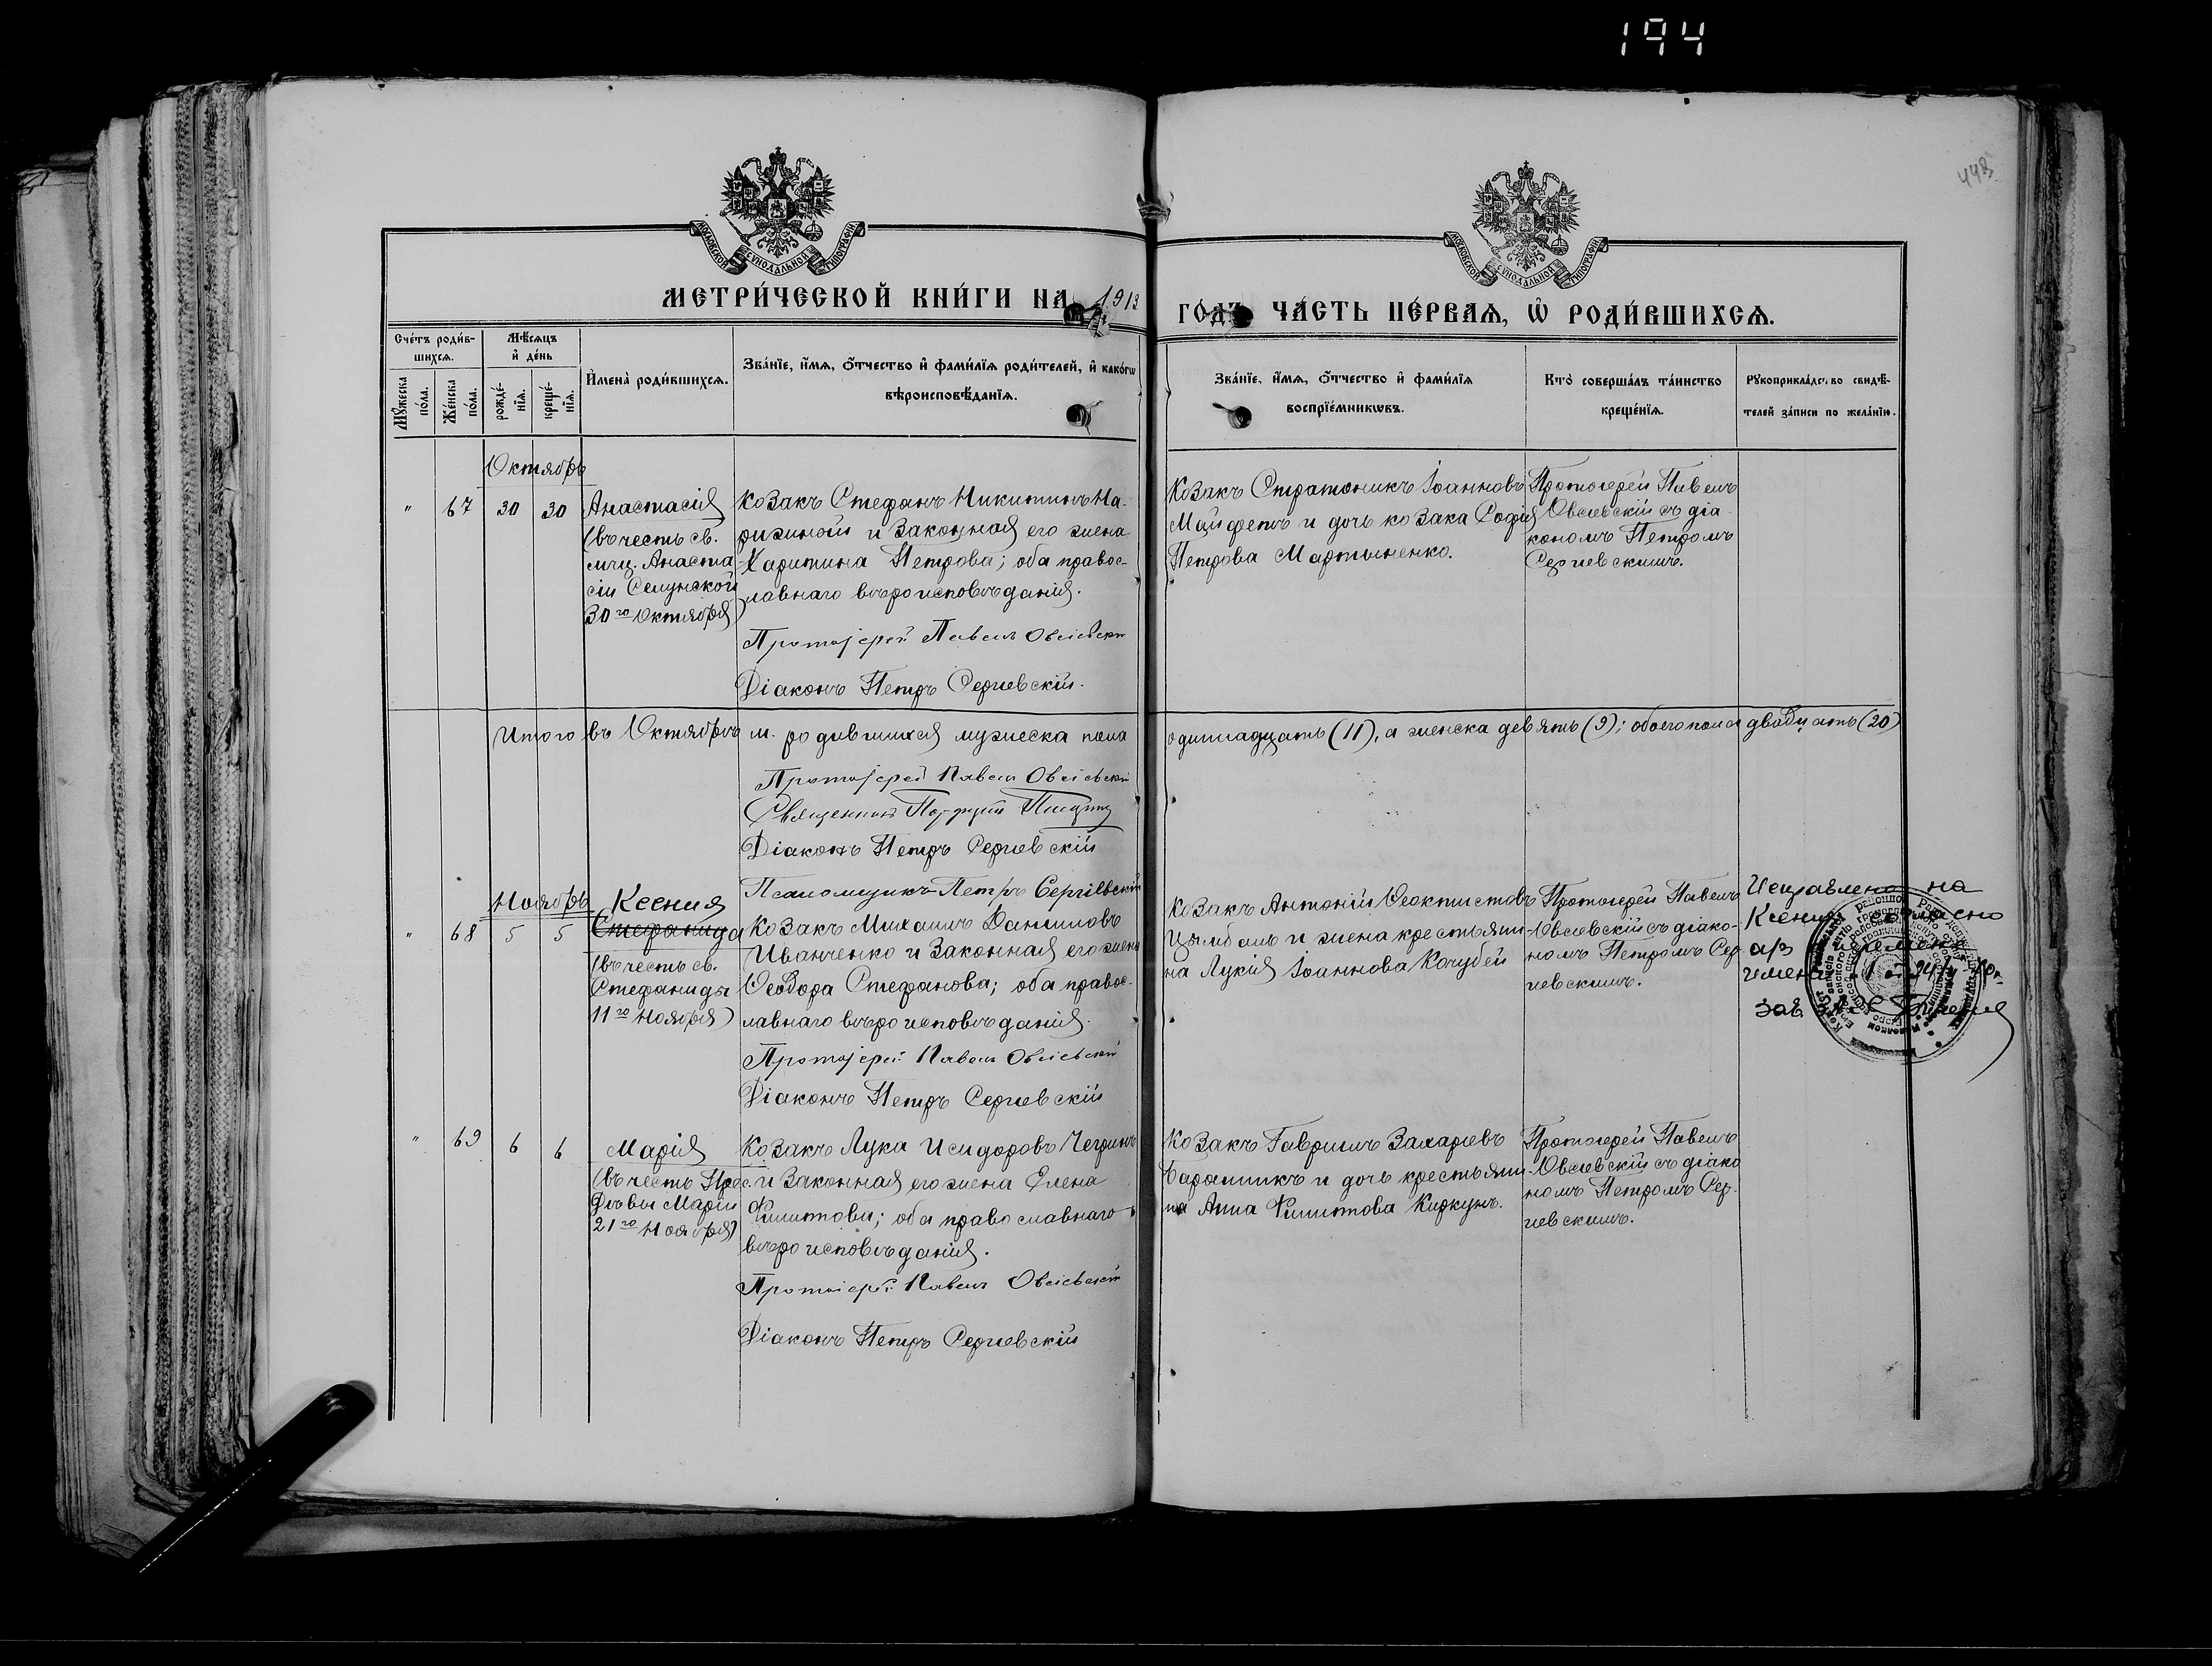 194
443
МОСКОВСКОЙ СѴНОДАЛЬНОЙ ТИПОГРАФІИ
МОСКОВСКОЙ СѴНОДАЛЬНОЙ ТИПОГРАФІИ
МЕТРИ́ЧЕСКОЙ КНИ́ГИ НА 1913
ГО́ДЪ ЧА́СТЬ ПЕ́РВАѦ, Ѡ҆ РОДИ́ВШИХСѦ.
Сче́тъ роди́в-
шихсѧ.
Мѣ́сѧцъ
и҆ де́нь
Мꙋ́жеска
по́ла.
Же́нска
по́ла.
рожде́-
нїѧ.
креще́-
нїѧ.
И҆мена̀ роди́вшихсѧ.
Зва́нїе, и҆́мѧ, ѻ҆́тчество и҆ фами́лїѧ роди́телей, и҆ како́гѡ
вѣроисповѣ́данїѧ.
Зва́нїе, и҆́мѧ, ѻ҆́тчество и҆ фами́лїѧ
воспрїе́мникѡвъ.
Кто̀ соверша́лъ та́инство
креще́нїѧ.
Рꙋкоприкла́дство свидѣ́-
телей за́писи по жела́нїю.
Октябрь
" 67 30 30
Анастасія
(въ честь св.
мчц. Анаста
сіи Солунской
30го Октября)
Козакъ Стефанъ Никитинъ На-
рижной и законная его жена
Харитина Петрова; оба правос-
лавнаго вѣроисповѣданія.
Протоіерей Павелъ Овсіевскій
Діаконъ Петръ Сергіевскій.
Козакъ Стратоникъ Іоанновъ
Майфетъ и дочь козака Софія
Петрова Мартыненко.
Протоіерей Павелъ
Овсіевскій съ діа-
кономъ Петромъ
Сергіевскимъ.
Итого въ Октябрѣ м. родившихся мужеска пола одиннадцать (11), а женска девять (9); обоего пола двадцать (20)
Протоіерей Павелъ Овсіевскій
Священникъ
Діаконъ Петръ Сергіевскій
Псаломщикъ Петръ Сергіевскій
Ноябрь
" 68 5 5
Ксения
Стефанида
(въ честь св.
Стефаниды
11го Ноября)
Козакъ Михаилъ Даниловъ
Иванченко и законная его жена
Ѳеодора Стефанова; оба правос-
лавнаго вѣроисповѣданія.
Протоіерей Павелъ Овсіевскій
Діаконъ Петръ Сергіевскій
Козакъ Антоній Ѳеоктистовъ
Цымбалъ и жена крестьяни-
на Лукія Іоаннова Кочубей
Протоіерей Павелъ
Овсіевскій съ діако-
номъ Петромъ Сер-
гіевскимъ.
Исправлено на
Ксения согласно
зав
" 69 6 6
Марія
(въ честь Прес.
Дѣвы Маріи
21го Ноября)
Козакъ Лука Исидоровъ Чегринъ
и законная его жена Елена
Филиппова; оба православнаго
вѣроисповѣданія.
Протоіерей Павелъ Овсіевскій
Діаконъ Петръ Сергіевскій
Козакъ Гавріилъ Захаріевъ
Баранникъ и дочь крестьяни-
на Анна Филиппова Киркунъ.
Протоіерей Павелъ
Овсіевскій съ діако
номъ Петромъ Сер-
гіевскимъ.